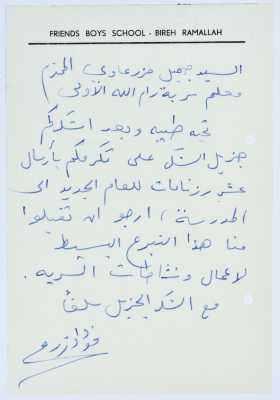 FRIENDS BOYS SCHOOL - BIREH RAMALLAH
السيد جميل حزرعاوي المحترم
معلم سرية رام الله الأولى
تحية طيبة وبعد اشكركم
جزيل الشكر على تكرمكم بأرسال
عشر رزنامات للعام الجديد الى
المدرسة، ارجو ان تقبلوا
منا هذا التبرع البسيط
لاعمال ونشاطات السرية.
مع الشكر الجزيل سلفاً
فؤاد زرو